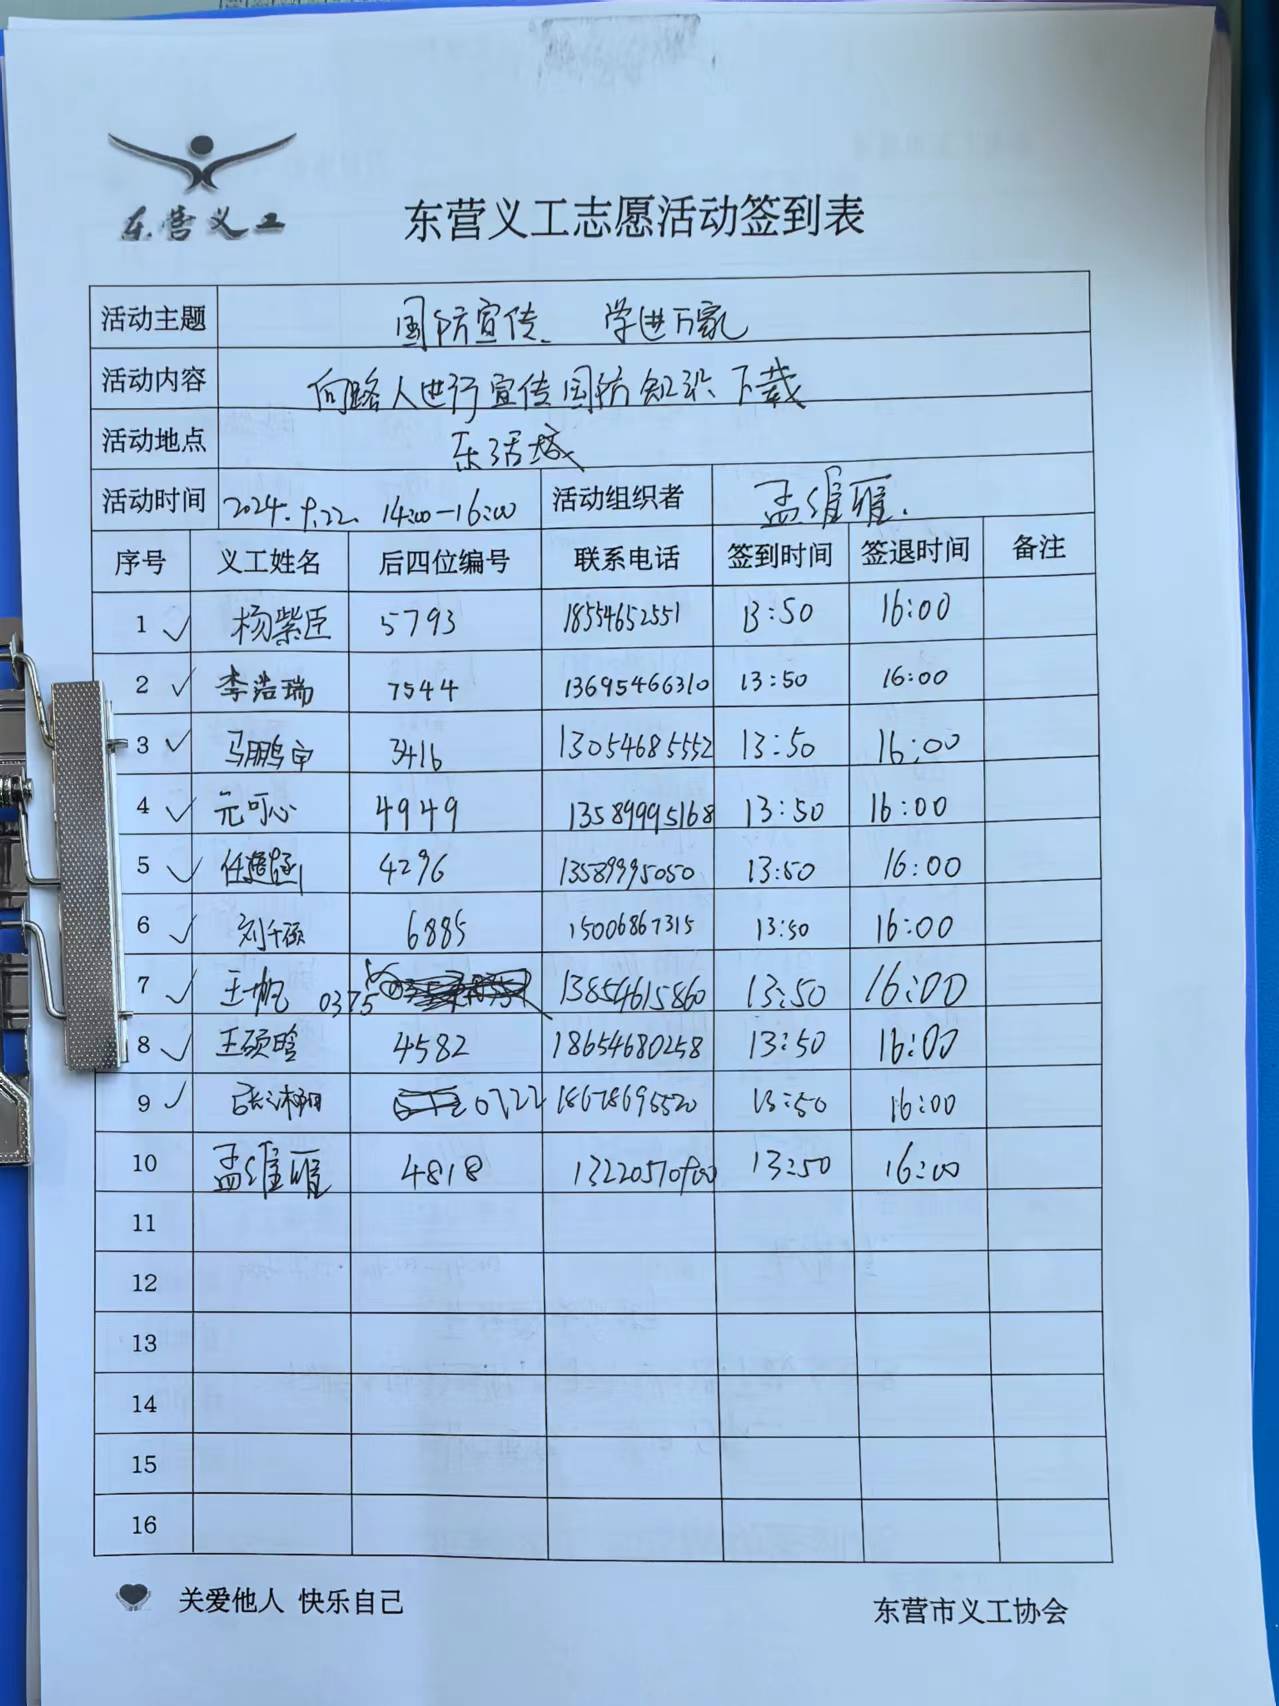 东营义工
东营义工志愿活动签到表
活动主题 国防宣传 学进万家
活动内容 向路人进行宣传国防知识下载
活动地点 东活城
活动时间 2024.9.22. 14:00-16:00 活动组织者 孟维雁.
序号 义工姓名 后四位编号 联系电话 签到时间 签退时间 备注
1 ✓ 杨紫臣 5793 18554652551 13:50 16:00
2 ✓ 李浩瑞 7544 13695466310 13:50 16:00
3 ✓ 马鹏申 3416 13054685552 13:50 16:00
4 ✓ 元可心 4949 13589995168 13:50 16:00
5 ✓ 任 4296 13589995050 13:50 16:00
6 ✓ 刘千硕 6885 15006867315 13:50 16:00
7 ✓ 王帆 0375 13854615860 13:50 16:00
8 ✓ 王硕晗 4582 18654680258 13:50 16:00
9 ✓ 0722 18678695520 13:50 16:00
10 孟维雁 4818 13:50 16:00
11
12
13
14
15
16
关爱他人 快乐自己 东营市义工协会